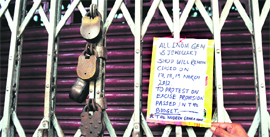 ALL INDIA GEM
& JEWELLERY
SHOP WILL REMAIN
CLOSED ON
17, 18, 19 MARCH
2012
TO PROTEST ON
EXCISE PROPOSAL
PASSED IN THE
BUDGET